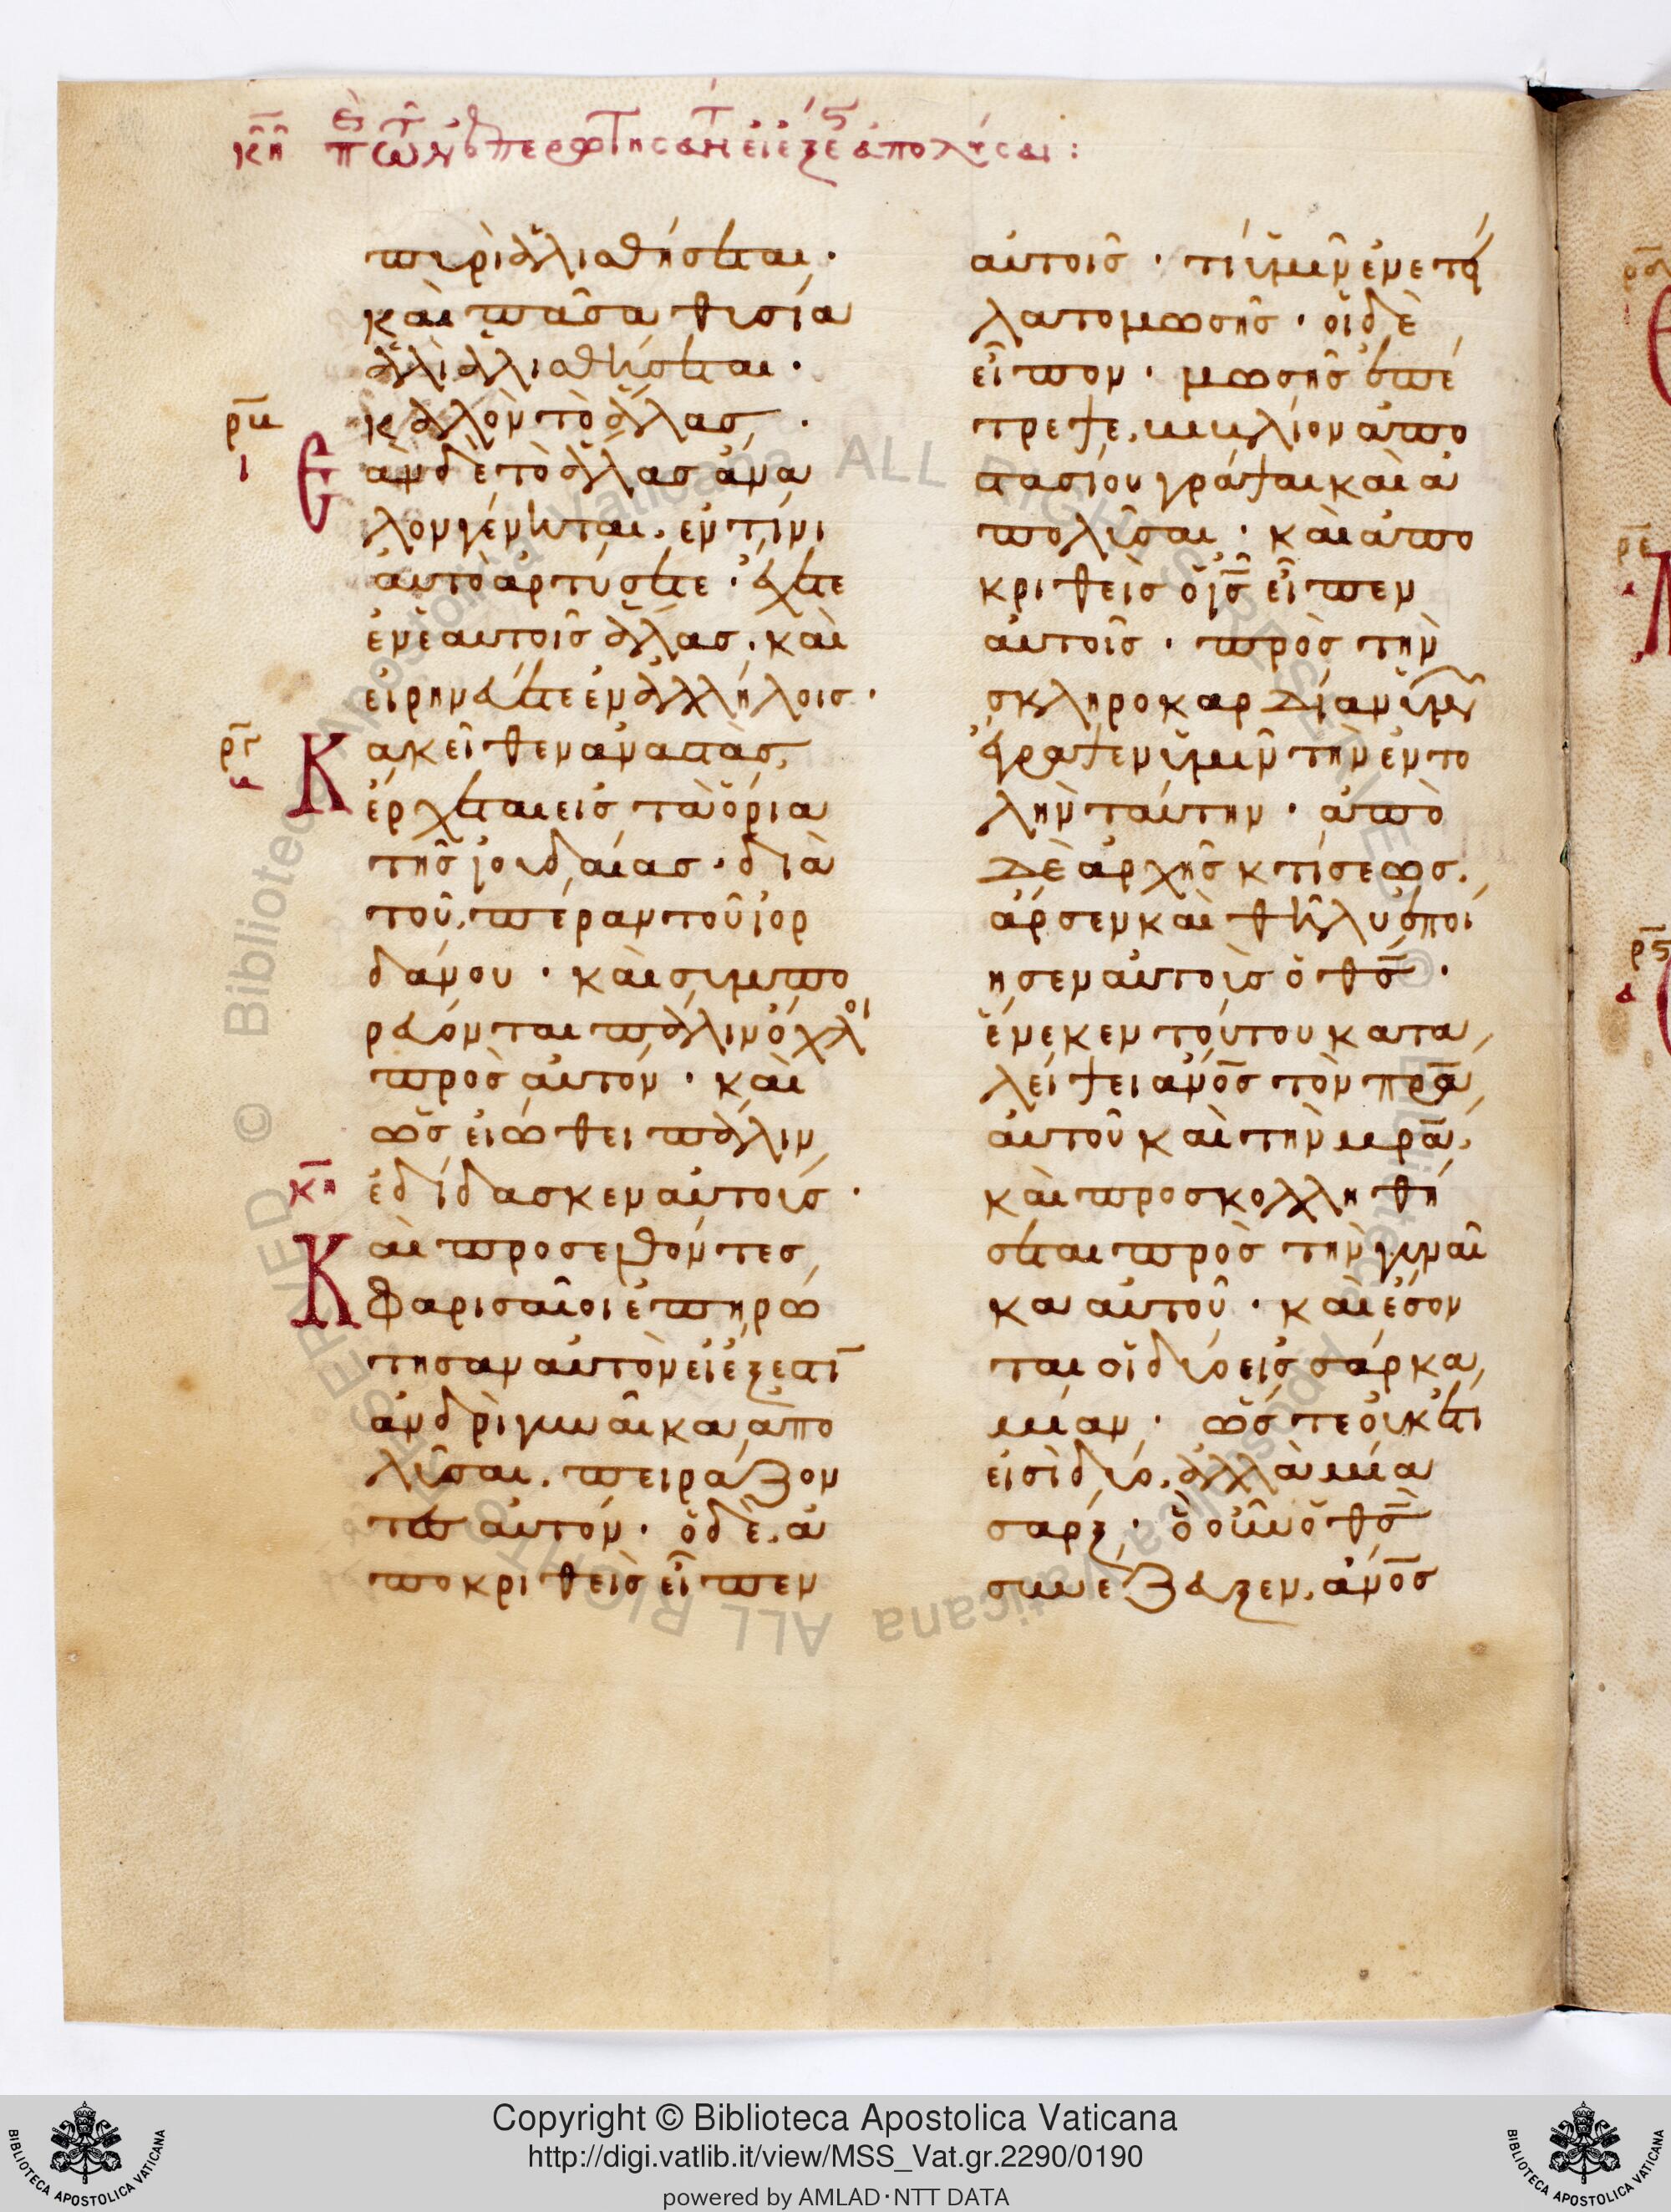 κη περὶ τῶν ἐπερωτησάντων εἰ ἔξεστιν ἀπολῦσαι :
πυρὶ ἁλισθήσεται ·
καὶ πᾶσα θυσία
ἁλὶ ἁλισθήσεται ·
καλὸν τὸ ἅλας ·
ρβ
ι
Ἐὰν δὲ τὸ ἅλας ἄνα
λον γένηται, ἐν τίνι
αὐτὸ ἀρτύσετε · ἔχετε
ἐν ἑαυτοῖς ἅλας, καὶ
εἰρηνεύετε ἐν ἀλλήλοις ·
ργ
Κακεῖθεν ἀναστὰς,
ἔρχεται εἰς τὰ ὅρια
τῆς ἰουδαίας · διὰ
τοῦ πέραν τοῦ ἰορ
δάνου · καὶ συμπο
ρεύονται πάλιν ὄχλοι
πρὸς αὐτόν · καὶ
ὡς εἰώθει πάλιν,
ἐδίδασκεν αὐτοὺς ·
κη
Καὶ προσελθόντες,
φαρισαῖοι ἐπηρώ
τησαν αὐτὸν εἰ ἔξεστι
ἀνδρὶ γυναῖκα ἀπο
λῦσαι, πειράζον
τες αὐτόν · ὁ δὲ ἀ
ποκριθεὶς εἶπεν
αὐτοῖς · τί ὑμῖν ἐνετεί
λατο μωσῆς · οἱ δὲ
εἶπον · μωσῆς ἐπέ
τρεψε, βιβλίον ἀπο
στασίου γράψαι καὶ ἀ
πολῦσαι · καὶ ἀπο
κριθεὶς ὁ ις εἶπεν
αὐτοῖς · πρὸς τὴν
σκληροκαρδίαν ὑμῶν
ἔγραψεν ὑμῖν τὴν ἐντο
λὴν ταύτην · ἀπὸ
δὲ ἀρχῆς κτίσεως,
ἄρσεν καὶ θῆλυ ἐποί
ησεν αὐτοὺς ὁ θς ·
ἕνεκεν τούτου κατα
λείψει ανος τὸν πρα
αὐτοῦ καὶ τὴν μρα,
καὶ προσκολληθή
σεται πρὸς τὴν γυναῖ
κα αὐτοῦ · καὶ ἔσον
ται οἱ δύο εἰς σάρκα
μίαν · ὥστε οὐκέτι
εἰσὶ δύο, ἀλλὰ μία
σάρξ · ὃ οὖν ὁ θς
συνέζευξεν, ανος